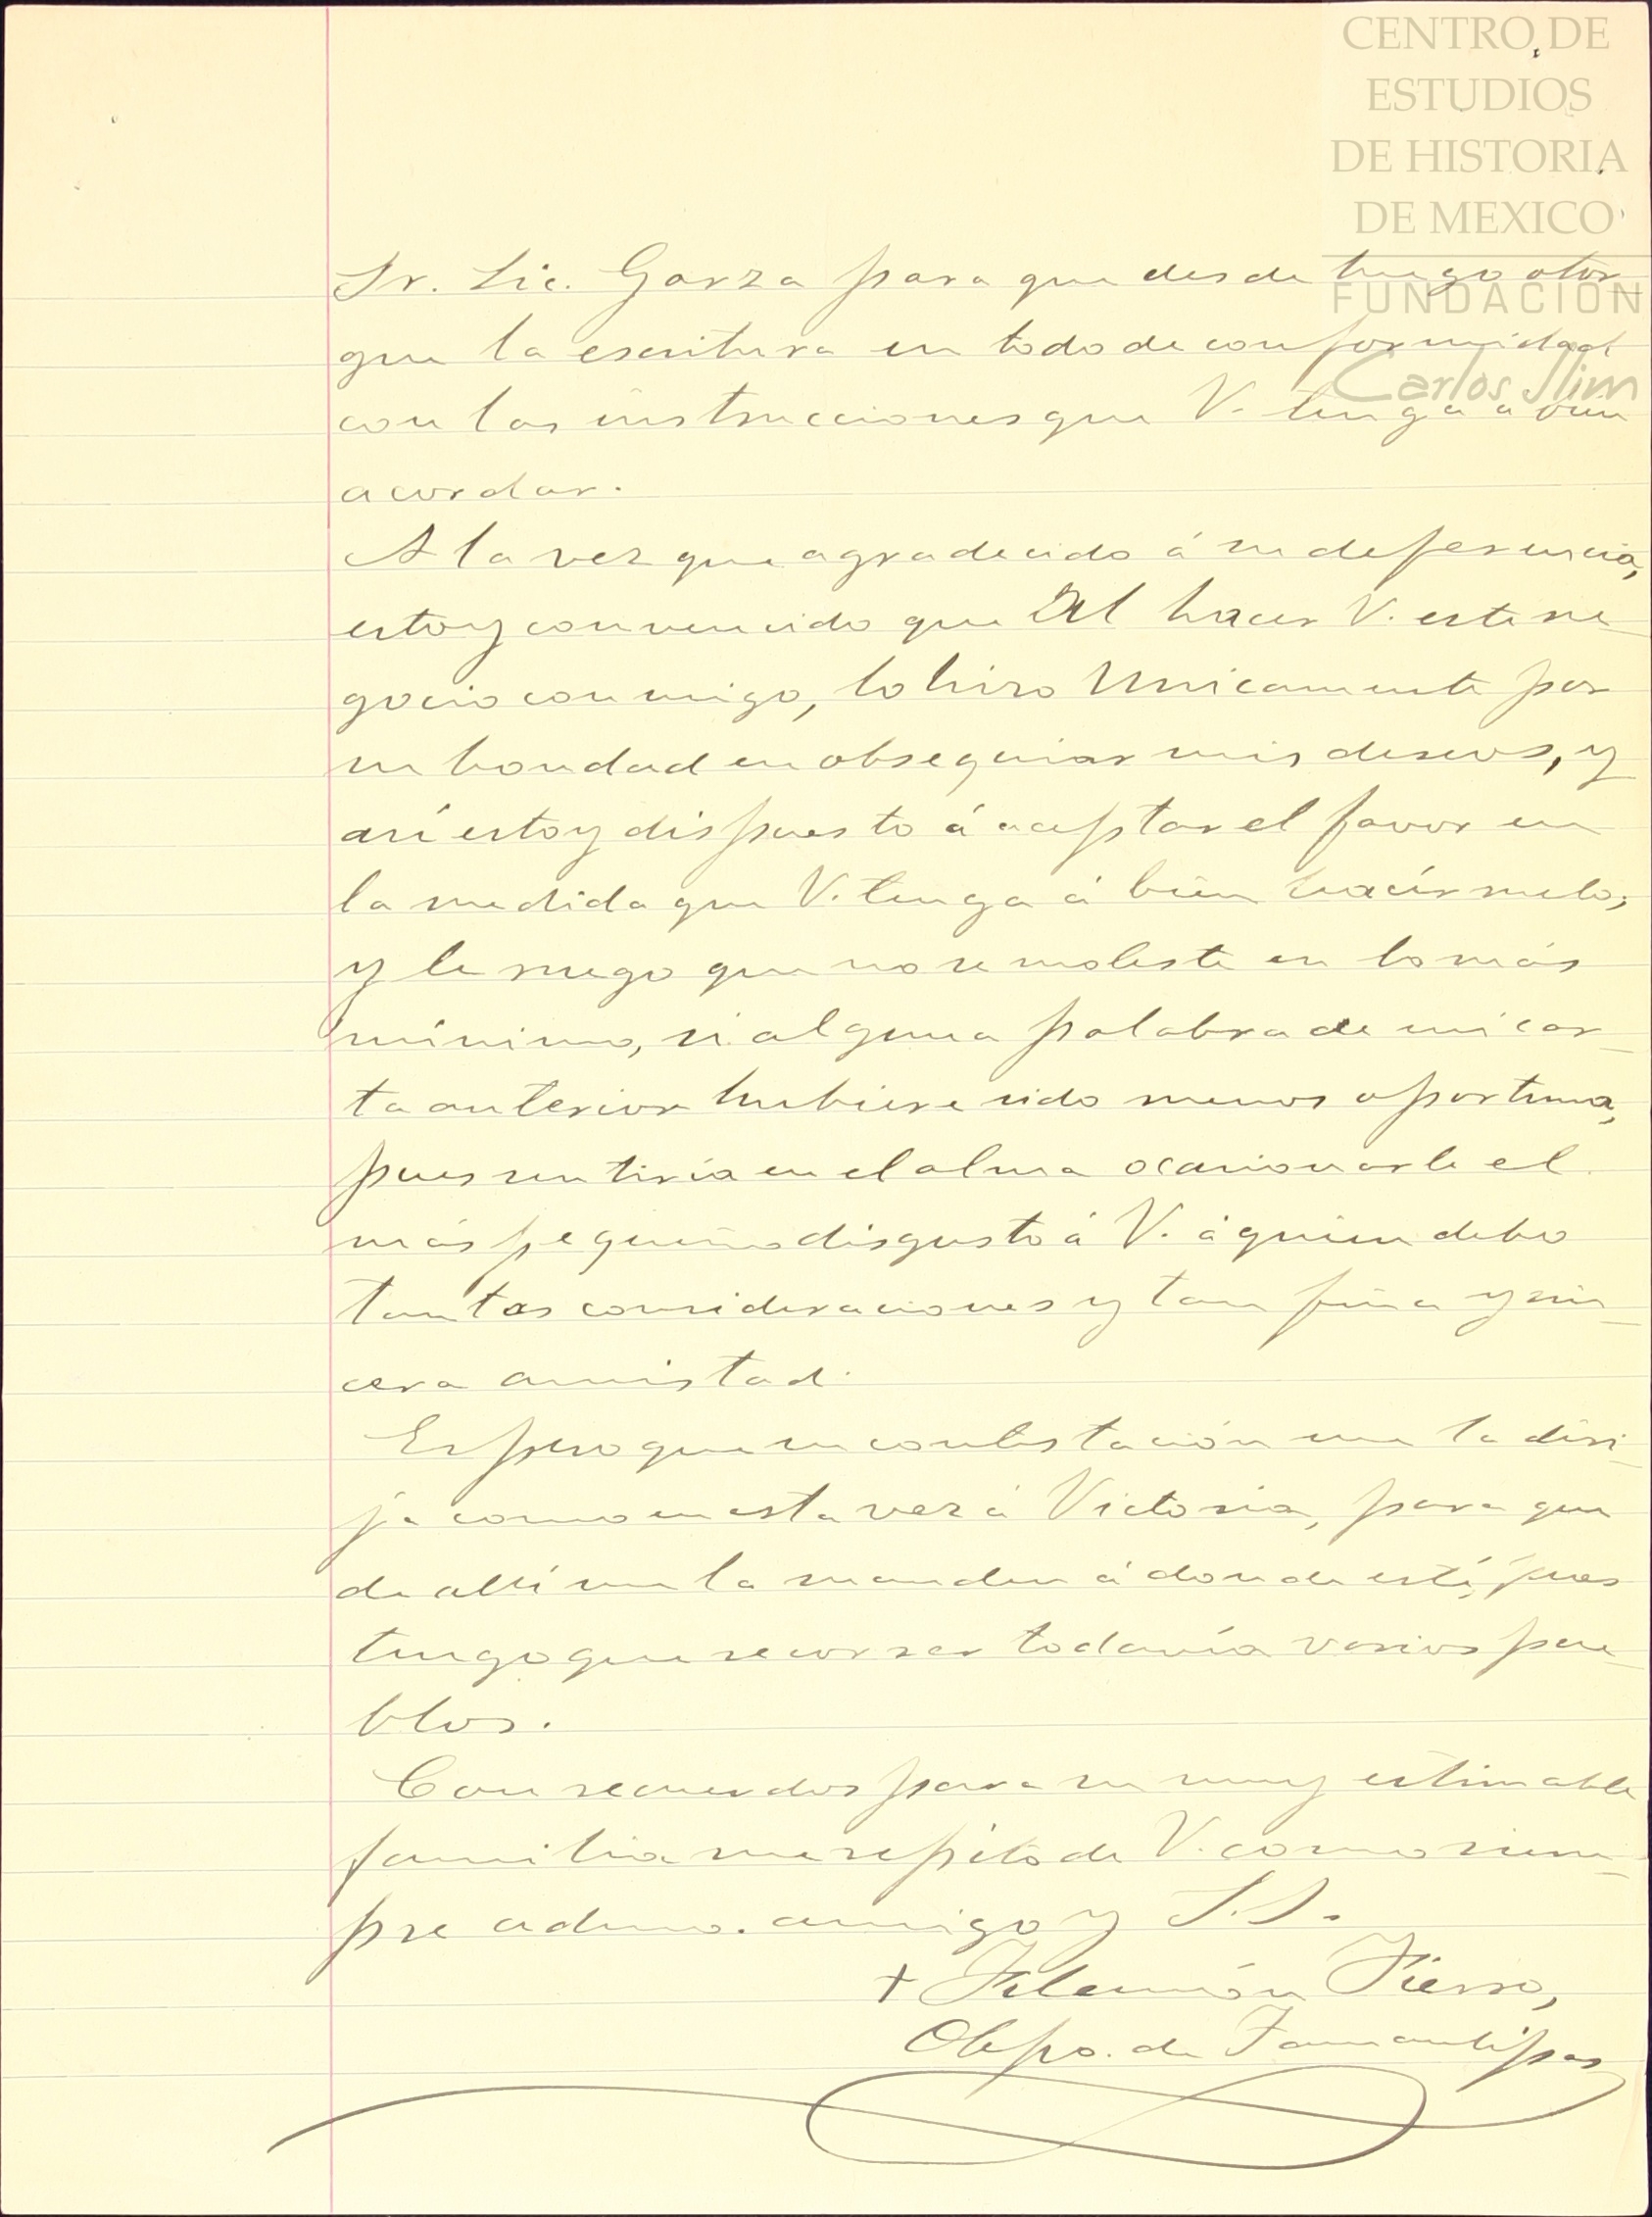 CENTRO DE
ESTUDIOS
DE HISTORIA
DE MEXICO
FUNDACION
Carlos Slim
Sr. Lic. Garza para que desde luego otor_
gue la escritura en todo de conformidad
con las instrucciones que V. tenga a bien
acordar.
A la vez que agradecido á su deferencia,
estoy convencido que al hacer V. este ne_
gocio conmigo, lo hizo unicamente por
su bondad en obsequiar mis deseos, y
así estoy dispuesto á aceptar el favor en
la medida que V. tenga á bien hacérmelo;
y le ruego que no se moleste en lo más
mínimo, si alguna palabra de mi car_
ta anterior hubiere sido menos oportuna,
pues sentiría en el alma ocasionarle el
más pequeño disgusto á V. á quien debo
tantas consideraciones y tan fina y sin_
cera amistad.
Espero que su contestación me la diri_
ja como en esta vez á Victoria, para que
de allí me la manden á donde esté, pues
tengo que recorrer todavía varios pue_
blos.
Con recuerdos para su muy estimable
familia me repito de V. como siem_
pre admo. amigo y S.S.
+ Filemón Fierro,
Obpo. de Tamaulipas